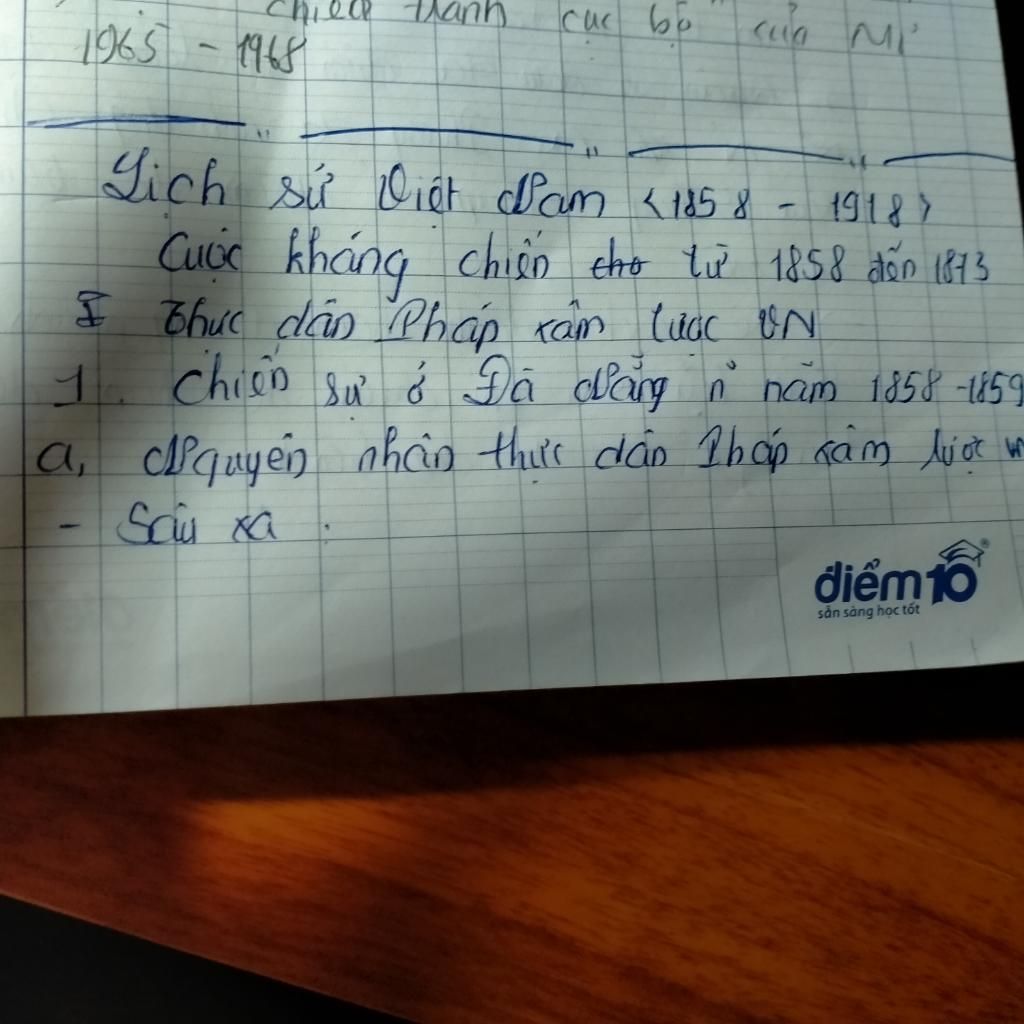 chiến tranh cục bộ của Mĩ
1965 - 1968
Lịch sử Việt Nam <1858 - 1918>
Cuộc kháng chiến tho từ 1858 đến 1873
I Thực dân Pháp xâm lược VN
1. Chiến sự ở Đà Nẵng n° năm 1858 - 1859
a, Nguyên nhân thực dân Pháp xâm lược
- Sâu xa :
điểm10
sẵn sàng học tốt